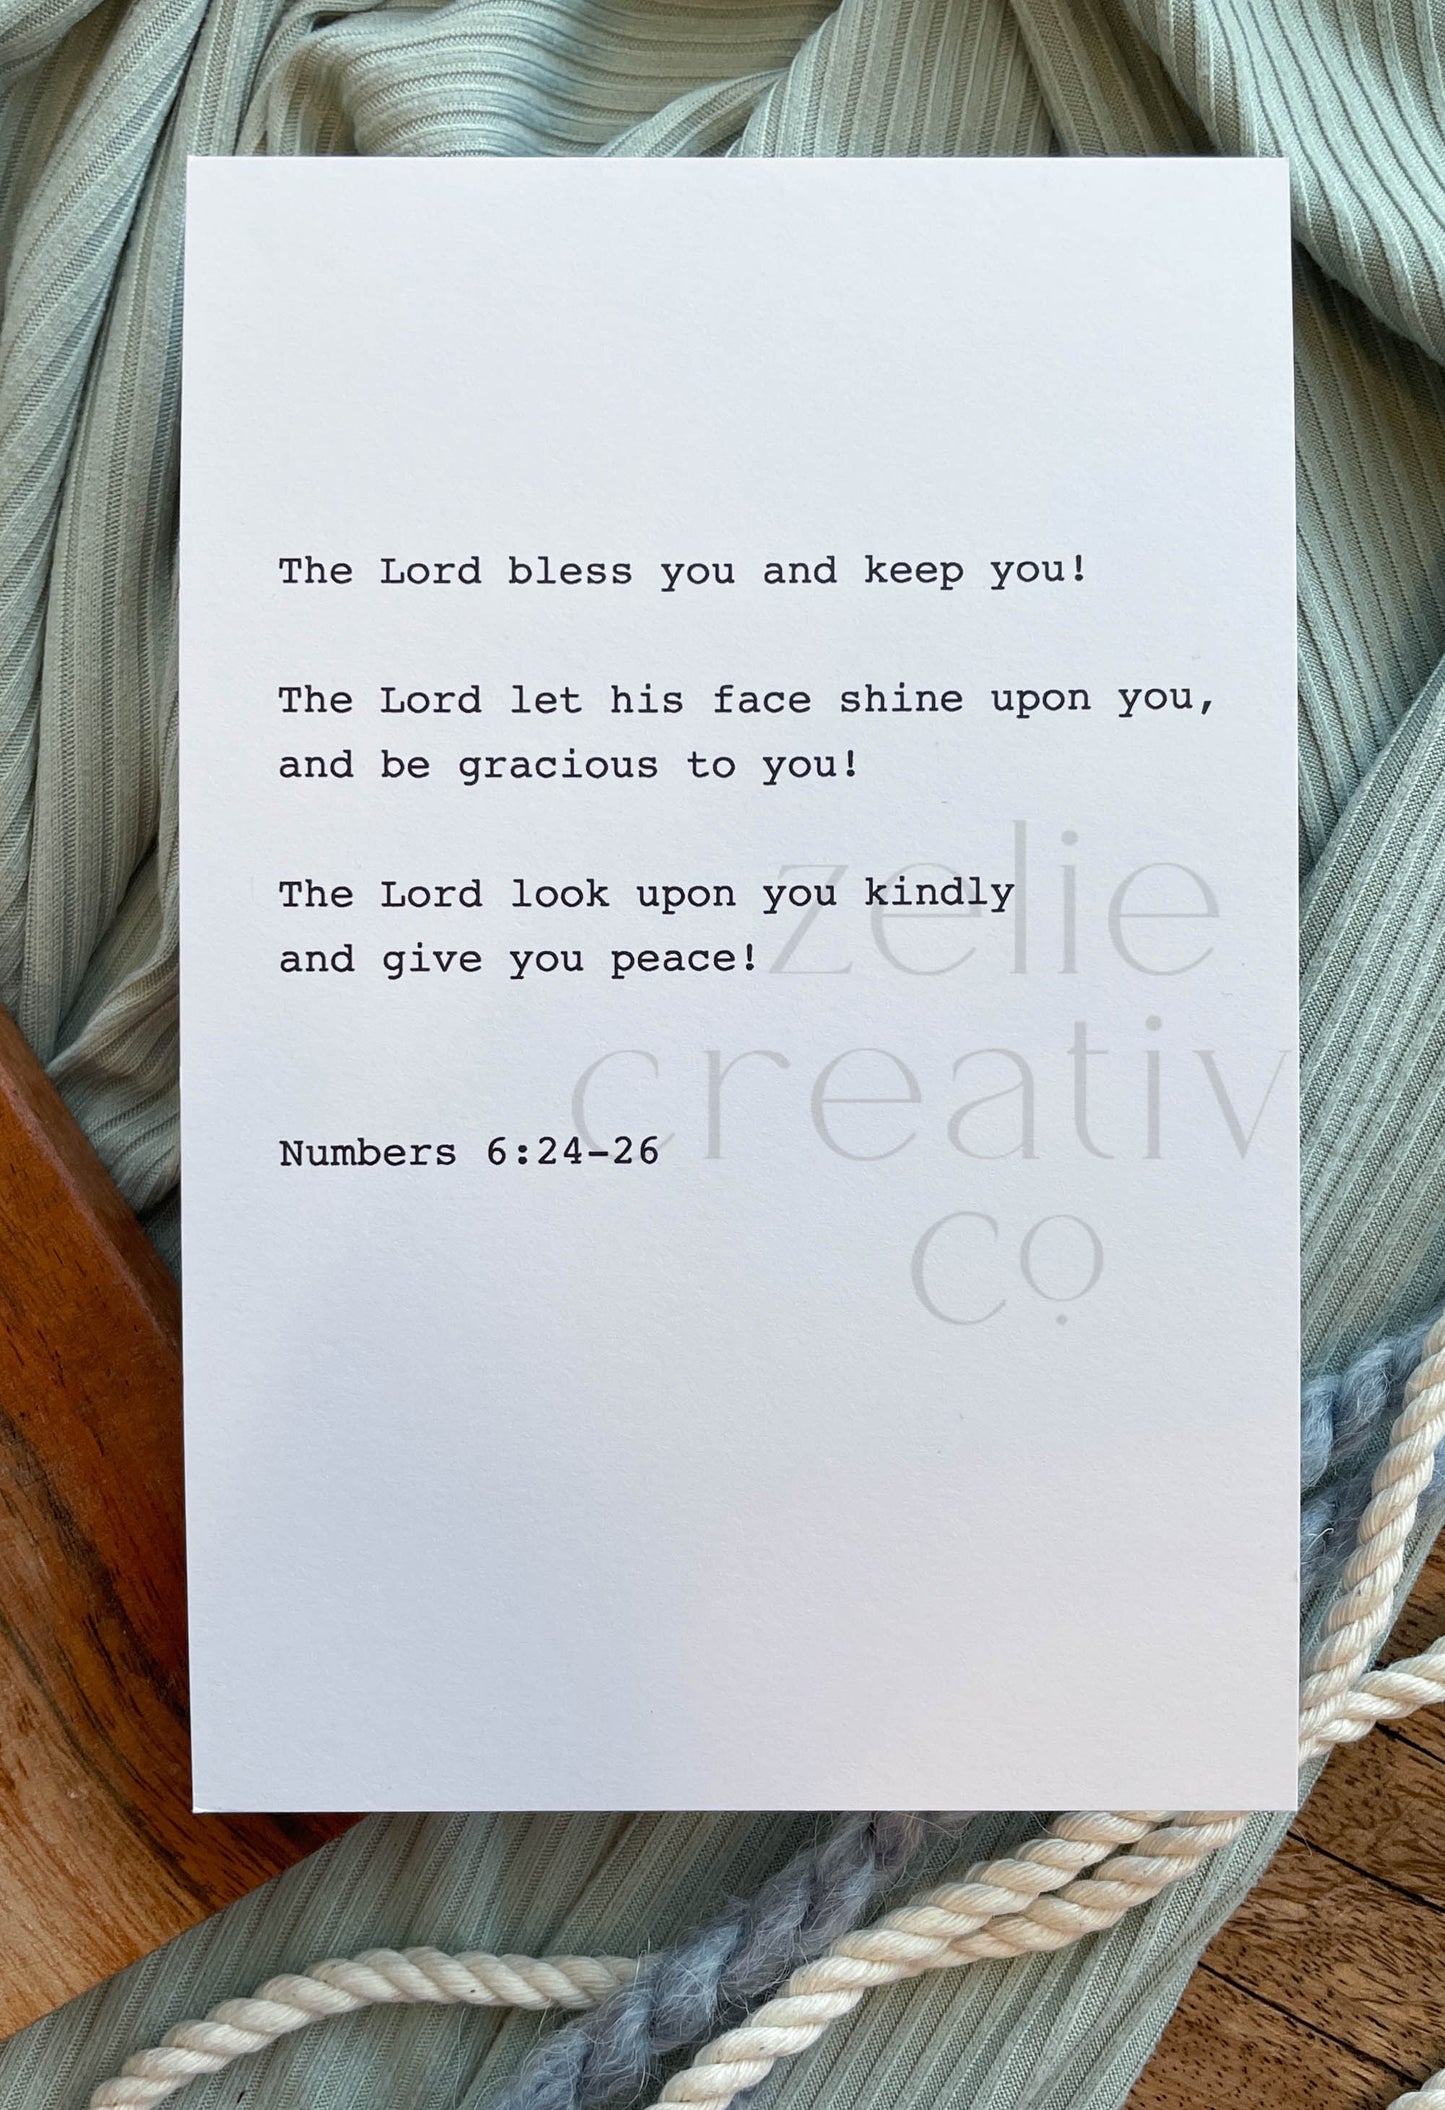 The Lord bless you and keep you!
The Lord let his face shine upon you,
and be gracious to you!
The Lord look upon you kindly
and give you peace!
Numbers 6:24-26
zelie
creativ
co